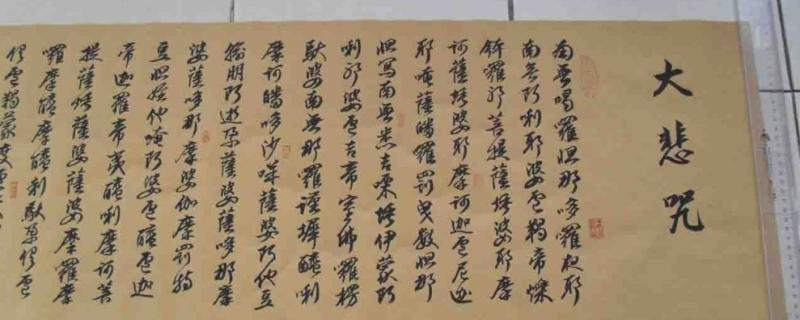 大悲咒
南無喝羅怛那哆羅夜耶
南無阿利耶婆盧羯帝爍
鉢羅耶菩提薩埵婆耶摩
訶薩埵婆耶摩訶迦盧尼迦
耶唵薩皤羅罰曳數怛那
怛寫南無悉吉嘌埵伊蒙阿
唎耶婆盧吉帝室佛羅楞
馱婆南無那羅謹墀醯唎
摩訶皤哆沙咩薩婆阿他豆
輸朋阿逝孕薩婆薩哆那摩
婆薩哆那摩婆伽摩罰特
豆怛姪他唵阿婆盧醯盧迦
帝迦羅帝夷醯唎摩訶菩
提薩埵薩婆薩婆摩羅摩
囉摩醯摩醯利馱孕俱盧
俱盧羯蒙度盧